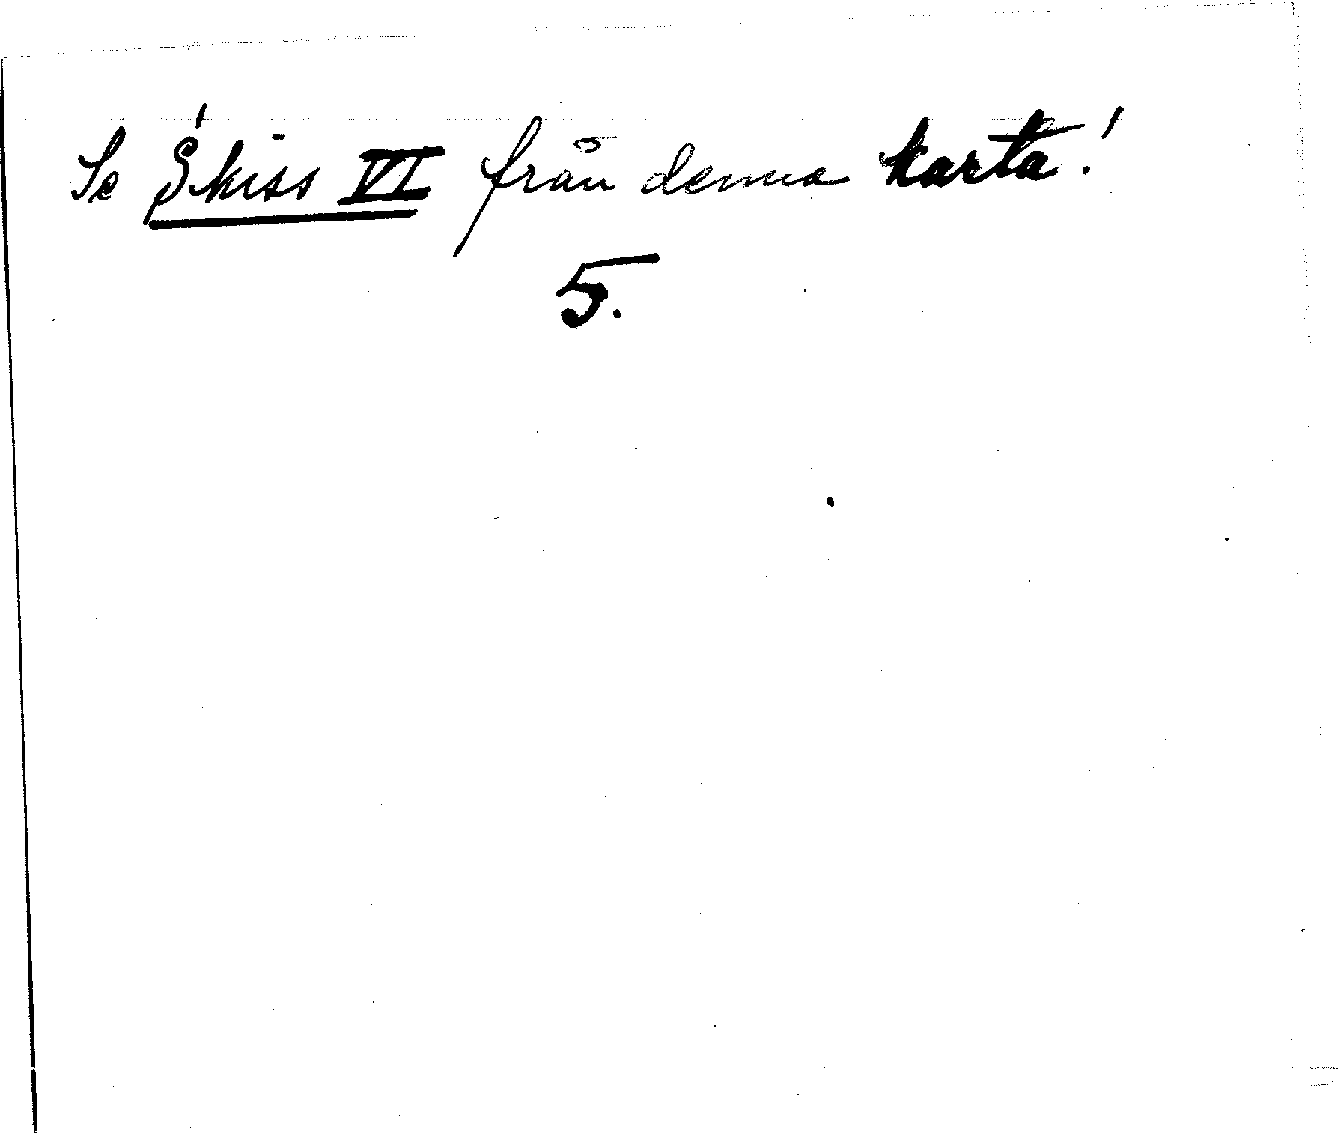 Se Skiss VI från denna karta!
5.